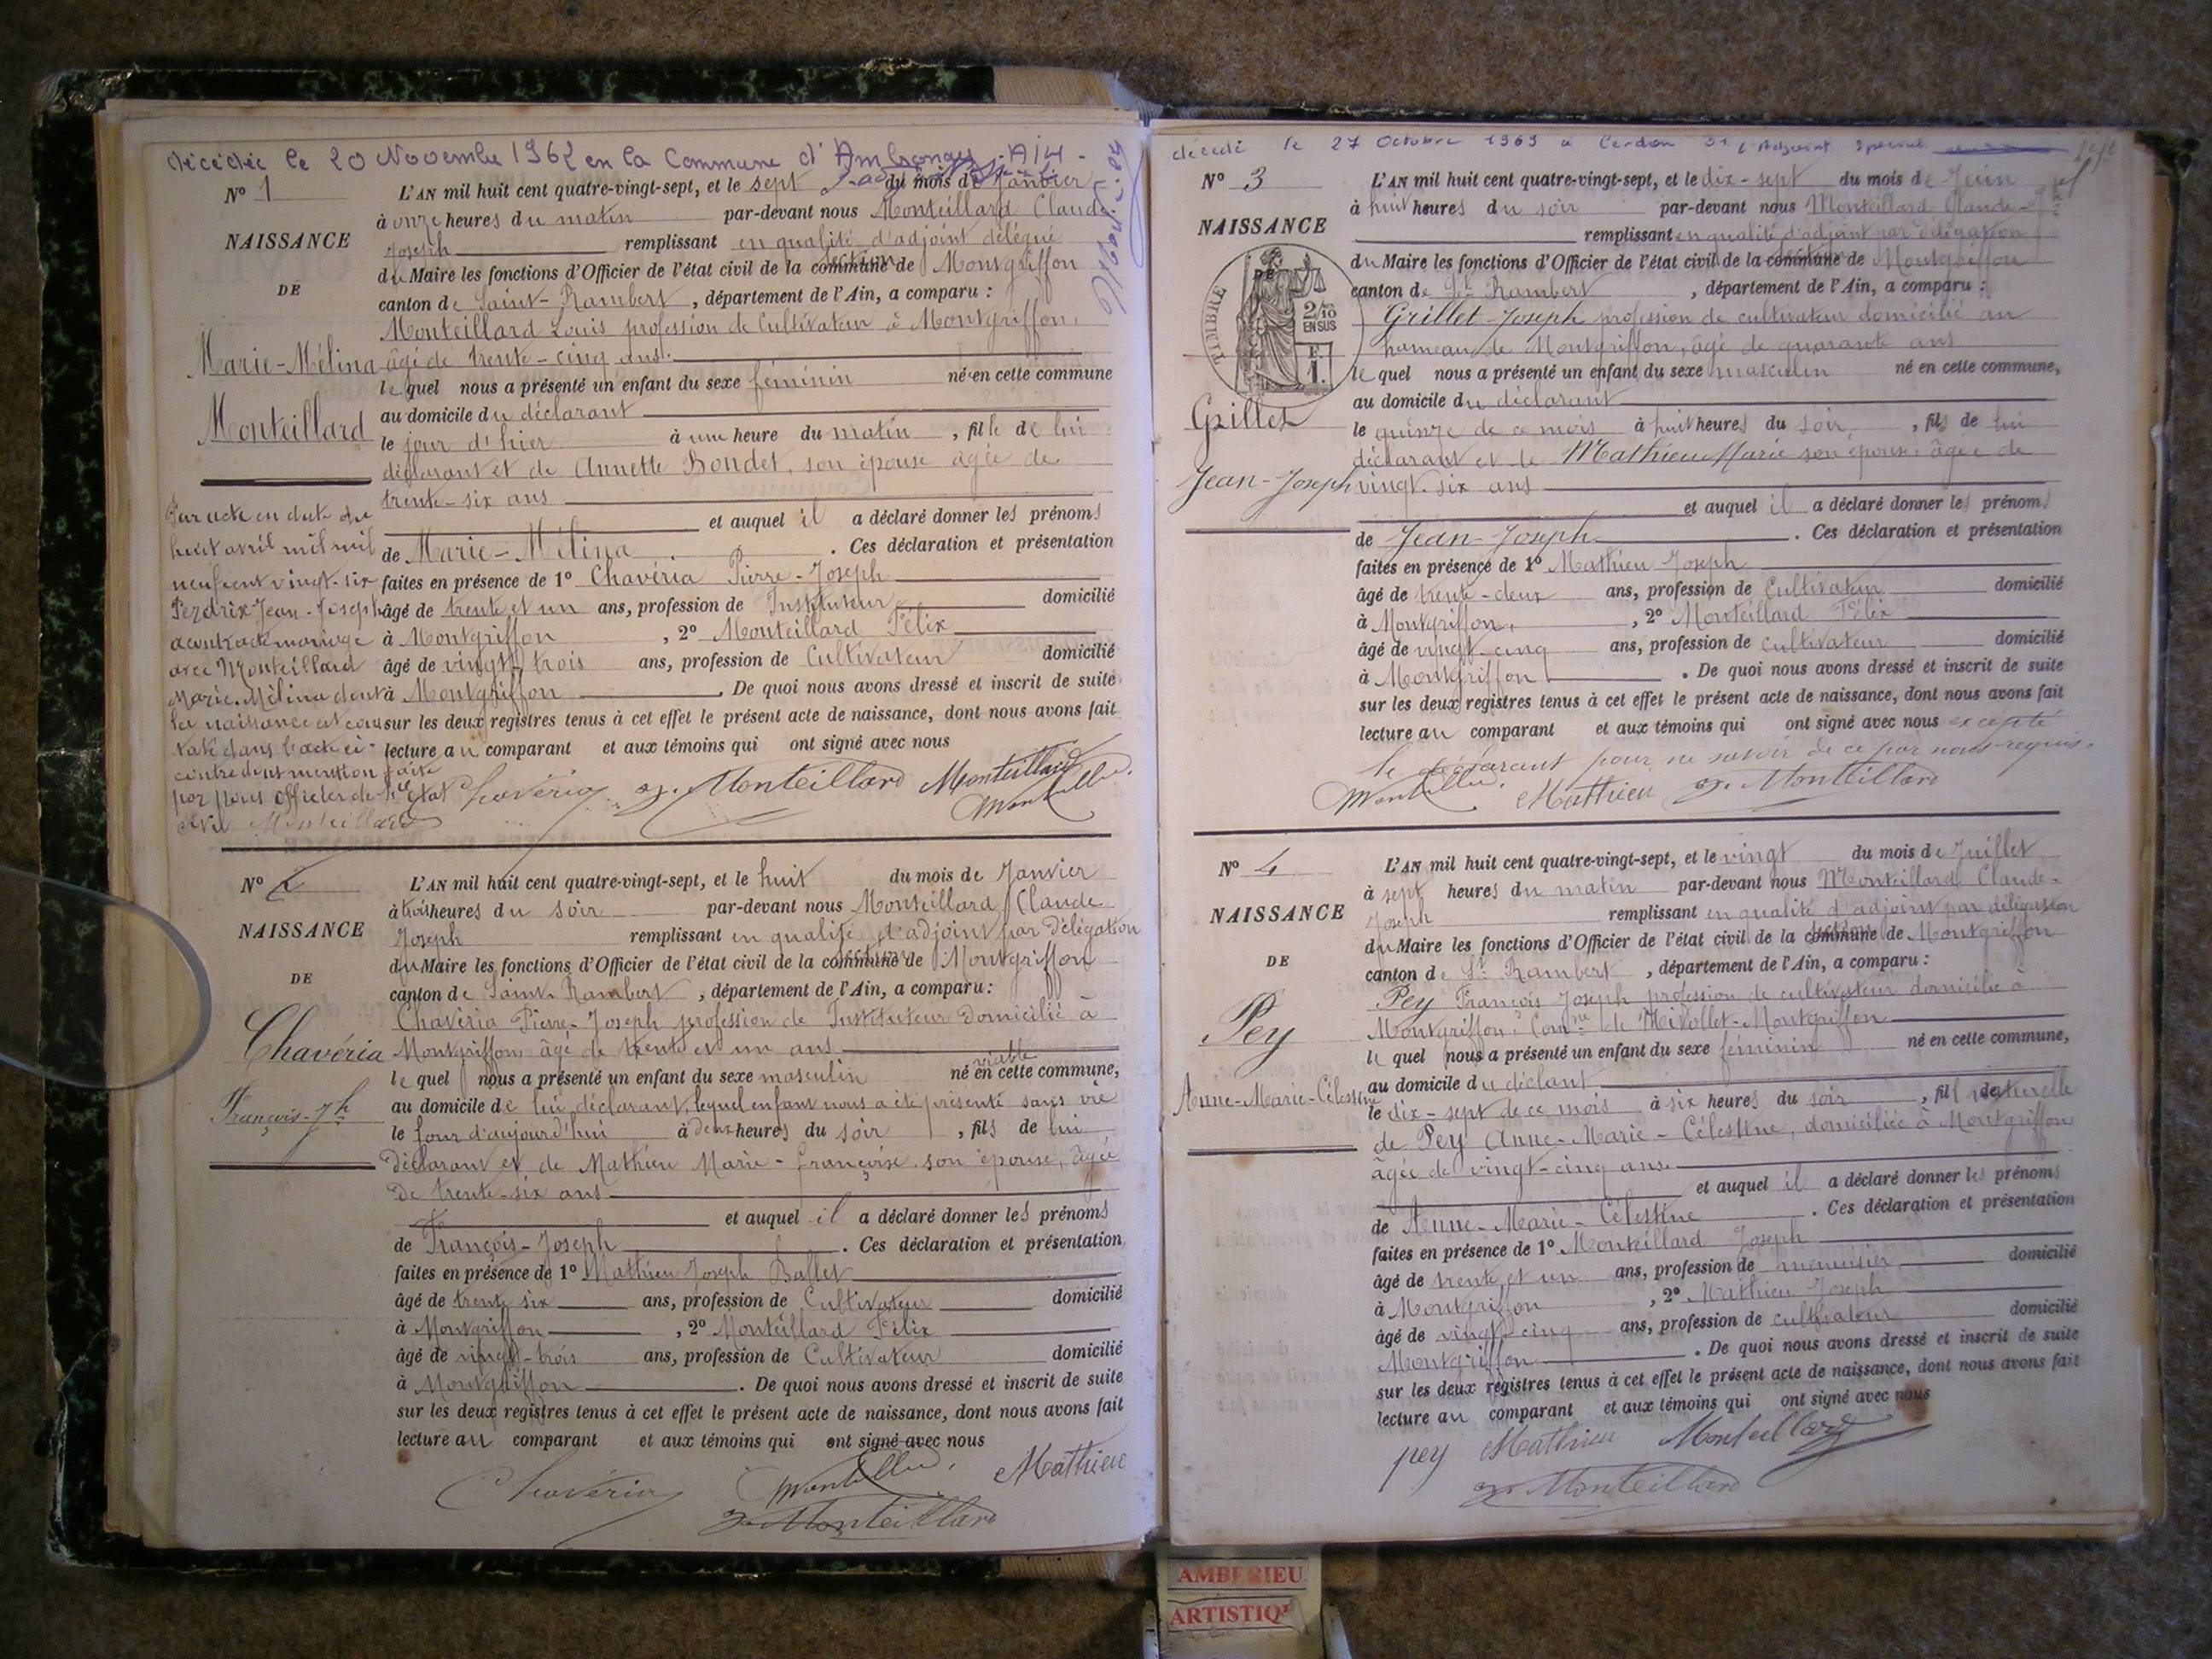 décédée le 20 Novembre 1962 en la Commune d'Ambronay - AIN -
N° 1
NAISSANCE
DE
Marie-Mélina
Monteillard
Par acte en date du
huit avril mil
neuf cent vingt-six
Perdrix Jean-Joseph
a contracté mariage
avec Monteillard
Marie-Mélina dont
la naissance est cons
tatée dans l'acte ci-
contre dont mention faite
par nous Officier de l'état
civil Monteillard
L'AN mil huit cent quatre-vingt-sept, et le sept du mois de Janvier
à onze heures du matin par-devant nous Monteillard Claude
Joseph remplissant en qualité d'adjoint délégué
du Maire les fonctions d'Officier de l'état civil de la commune section de Montgriffon
canton de Saint-Rambert, département de l'Ain, a comparu :
Monteillard Louis profession de Cultivateur à Montgriffon,
âgé de trente-cinq ans.
lequel nous a présenté un enfant du sexe féminin né en cette commune
au domicile du déclarant
le jour d'hier à une heure du matin, fille de lui
déclarant et de Annette Bondet, son épouse âgée de
trente-six ans
et auquel il a déclaré donner les prénoms
de Marie-Mélina. Ces déclaration et présentation
faites en présence de 1° Chavéria Pierre-Joseph
âgé de trente et un ans, profession de Instituteur domicilié
à Montgriffon, 2° Monteillard Félix
âgé de vingt-trois ans, profession de Cultivateur domicilié
à Montgriffon. De quoi nous avons dressé et inscrit de suite
sur les deux registres tenus à cet effet le présent acte de naissance, dont nous avons fait
lecture au comparant et aux témoins qui ont signé avec nous
Chavéria Monteillard Monteillard
N° 2
NAISSANCE
DE
Chavéria
François-Jh
L'AN mil huit cent quatre-vingt-sept, et le huit du mois de Janvier
à trois heures du soir par-devant nous Monteillard Claude
Joseph remplissant en qualité d'adjoint par Délégation
du Maire les fonctions d'Officier de l'état civil de la commune section de Montgriffon
canton de Saint-Rambert, département de l'Ain, a comparu :
Chavéria Pierre-Joseph profession de Instituteur Domicilié à
Montgriffon âgé de trente et un ans
lequel nous a présenté un enfant du sexe masculin né viable en cette commune,
au domicile de lui déclarant, lequel enfant nous a été présenté sans vie
le jour d'aujourd'hui à deux heures du soir, fils de lui
Déclarant et de Mathieu Marie-Françoise son épouse, âgée
de trente-six ans
et auquel il a déclaré donner les prénoms
de François-Joseph. Ces déclaration et présentation
faites en présence de 1° Mathieu Joseph Ballet
âgé de trente six ans, profession de Cultivateur domicilié
à Montgriffon, 2° Monteillard Félix
âgé de vingt-trois ans, profession de Cultivateur domicilié
à Montgriffon. De quoi nous avons dressé et inscrit de suite
sur les deux registres tenus à cet effet le présent acte de naissance, dont nous avons fait
lecture au comparant et aux témoins qui ont signé avec nous
Chavéria Mathieu
Monteillard
décédé le 27 Octobre 1969 à Cerdon l'Adjoint Spécial
N° 3
NAISSANCE
DE
TIMBRE
2/10
EN SUS
F.
1.
Grillet
Jean-Joseph
L'AN mil huit cent quatre-vingt-sept, et le dix-sept du mois de Juin
à huit heures du soir par-devant nous Monteillard Claude-Jh
remplissant en qualité d'adjoint par délégation
du Maire les fonctions d'Officier de l'état civil de la commune de Montgriffon
canton de St Rambert, département de l'Ain, a comparu :
Grillet Joseph profession de cultivateur domicilié au
hameau de Montgriffon, âgé de quarante ans
lequel nous a présenté un enfant du sexe masculin né en cette commune,
au domicile du déclarant
le quinze de ce mois à huit heures du soir, fils de lui
déclarant et de Mathieu Marie son épouse, âgée de
vingt-six ans
et auquel il a déclaré donner les prénoms
de Jean-Joseph. Ces déclaration et présentation
faites en présence de 1° Mathieu Joseph
âgé de trente-deux ans, profession de Cultivateur domicilié
à Montgriffon, 2° Monteillard Félix
âgé de vingt-cinq ans, profession de cultivateur domicilié
à Montgriffon. De quoi nous avons dressé et inscrit de suite
sur les deux registres tenus à cet effet le présent acte de naissance, dont nous avons fait
lecture au comparant et aux témoins qui ont signé avec nous excepté
le déclarant pour ne savoir de ce par nous requis.
Mathieu Monteillard
N° 4
NAISSANCE
DE
Pey
Anne-Marie-Célestine
L'AN mil huit cent quatre-vingt-sept, et le vingt du mois de Juillet
à sept heures du matin par-devant nous Monteillard Claude-
Joseph remplissant en qualité d'adjoint par délégation
du Maire les fonctions d'Officier de l'état civil de la commune section de Montgriffon
canton de St Rambert, département de l'Ain, a comparu :
Pey François Joseph profession de cultivateur domicilié à
Montgriffon, Comne de Nivollet-Montgriffon
lequel nous a présenté un enfant du sexe féminin né en cette commune,
au domicile du déclant
le dix-sept de ce mois à six heures du soir, fille naturelle
de Pey Anne-Marie-Célestine, domiciliée à Montgriffon
âgée de vingt-cinq ans
et auquel il a déclaré donner les prénoms
de Anne-Marie-Célestine. Ces déclaration et présentation
faites en présence de 1° Monteillard Joseph
âgé de trente et un ans, profession de menuisier domicilié
à Montgriffon, 2° Mathieu Joseph
âgé de vingt-cinq ans, profession de cultivateur domicilié
Montgriffon. De quoi nous avons dressé et inscrit de suite
sur les deux registres tenus à cet effet le présent acte de naissance, dont nous avons fait
lecture au comparant et aux témoins qui ont signé avec nous
pey Mathieu Monteillard
Monteillard
AMBERIEU
ARTISTIQ